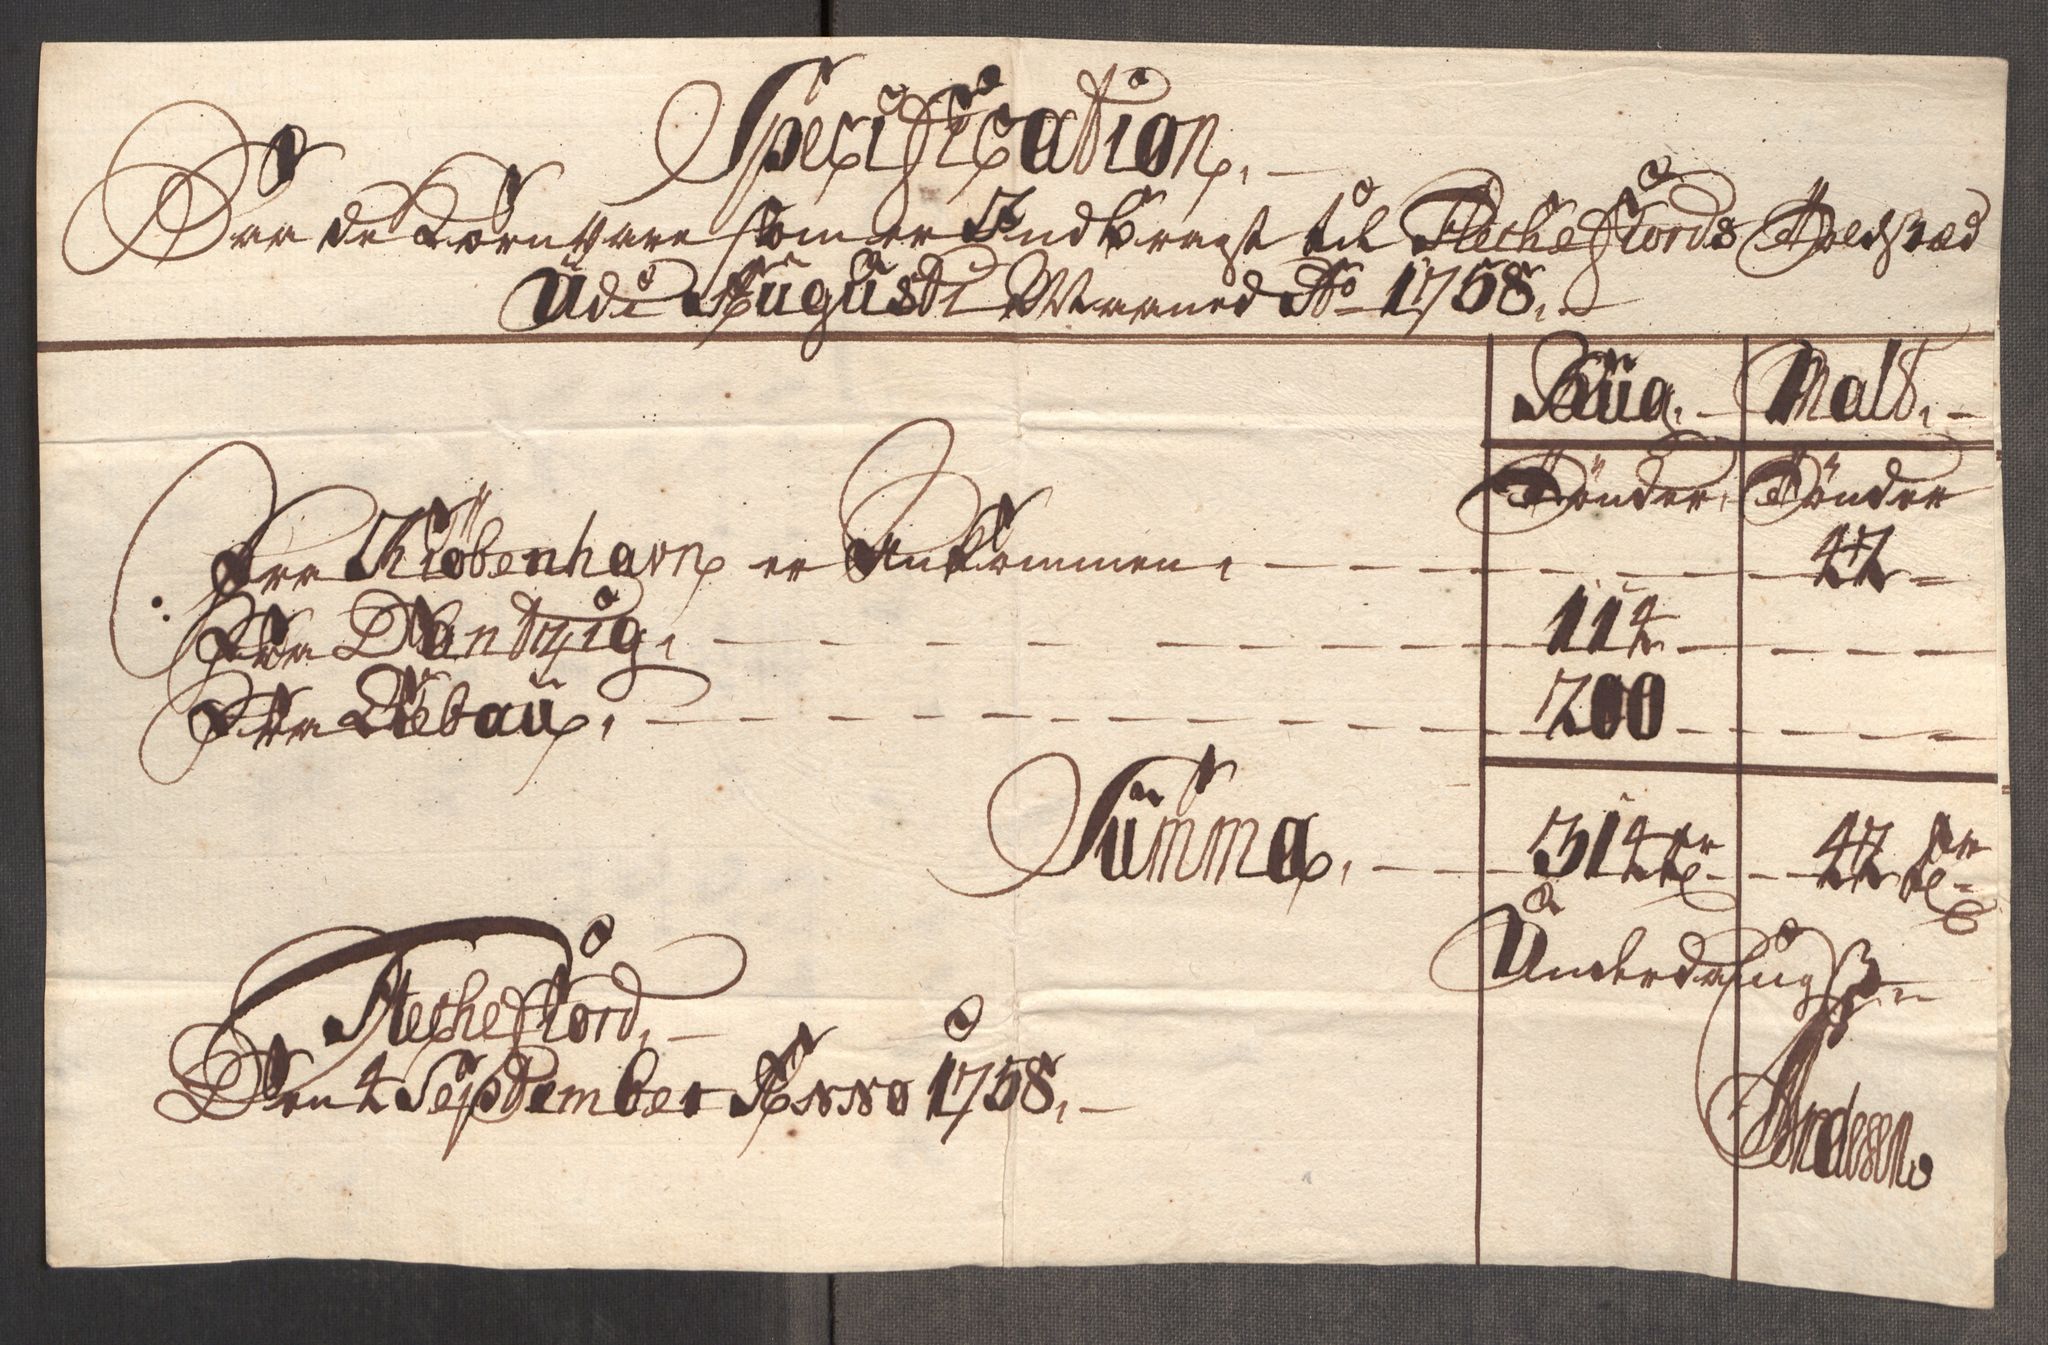 Specification,
Paa de Kornvare som er Indbragt til Flechefiords Toldsted
Udi Augusti Maaned Ao 1758.
Rüg. Malt.
Tönder, Tönder
Fra Kiöbenhavn er Ankommen, 42
Fra Dantzig, 114
Fra Liebau, 200
Summa, 314 tr 42 tr
Underdanigst
Flechefiord,
Den 4 September Anno 1758.